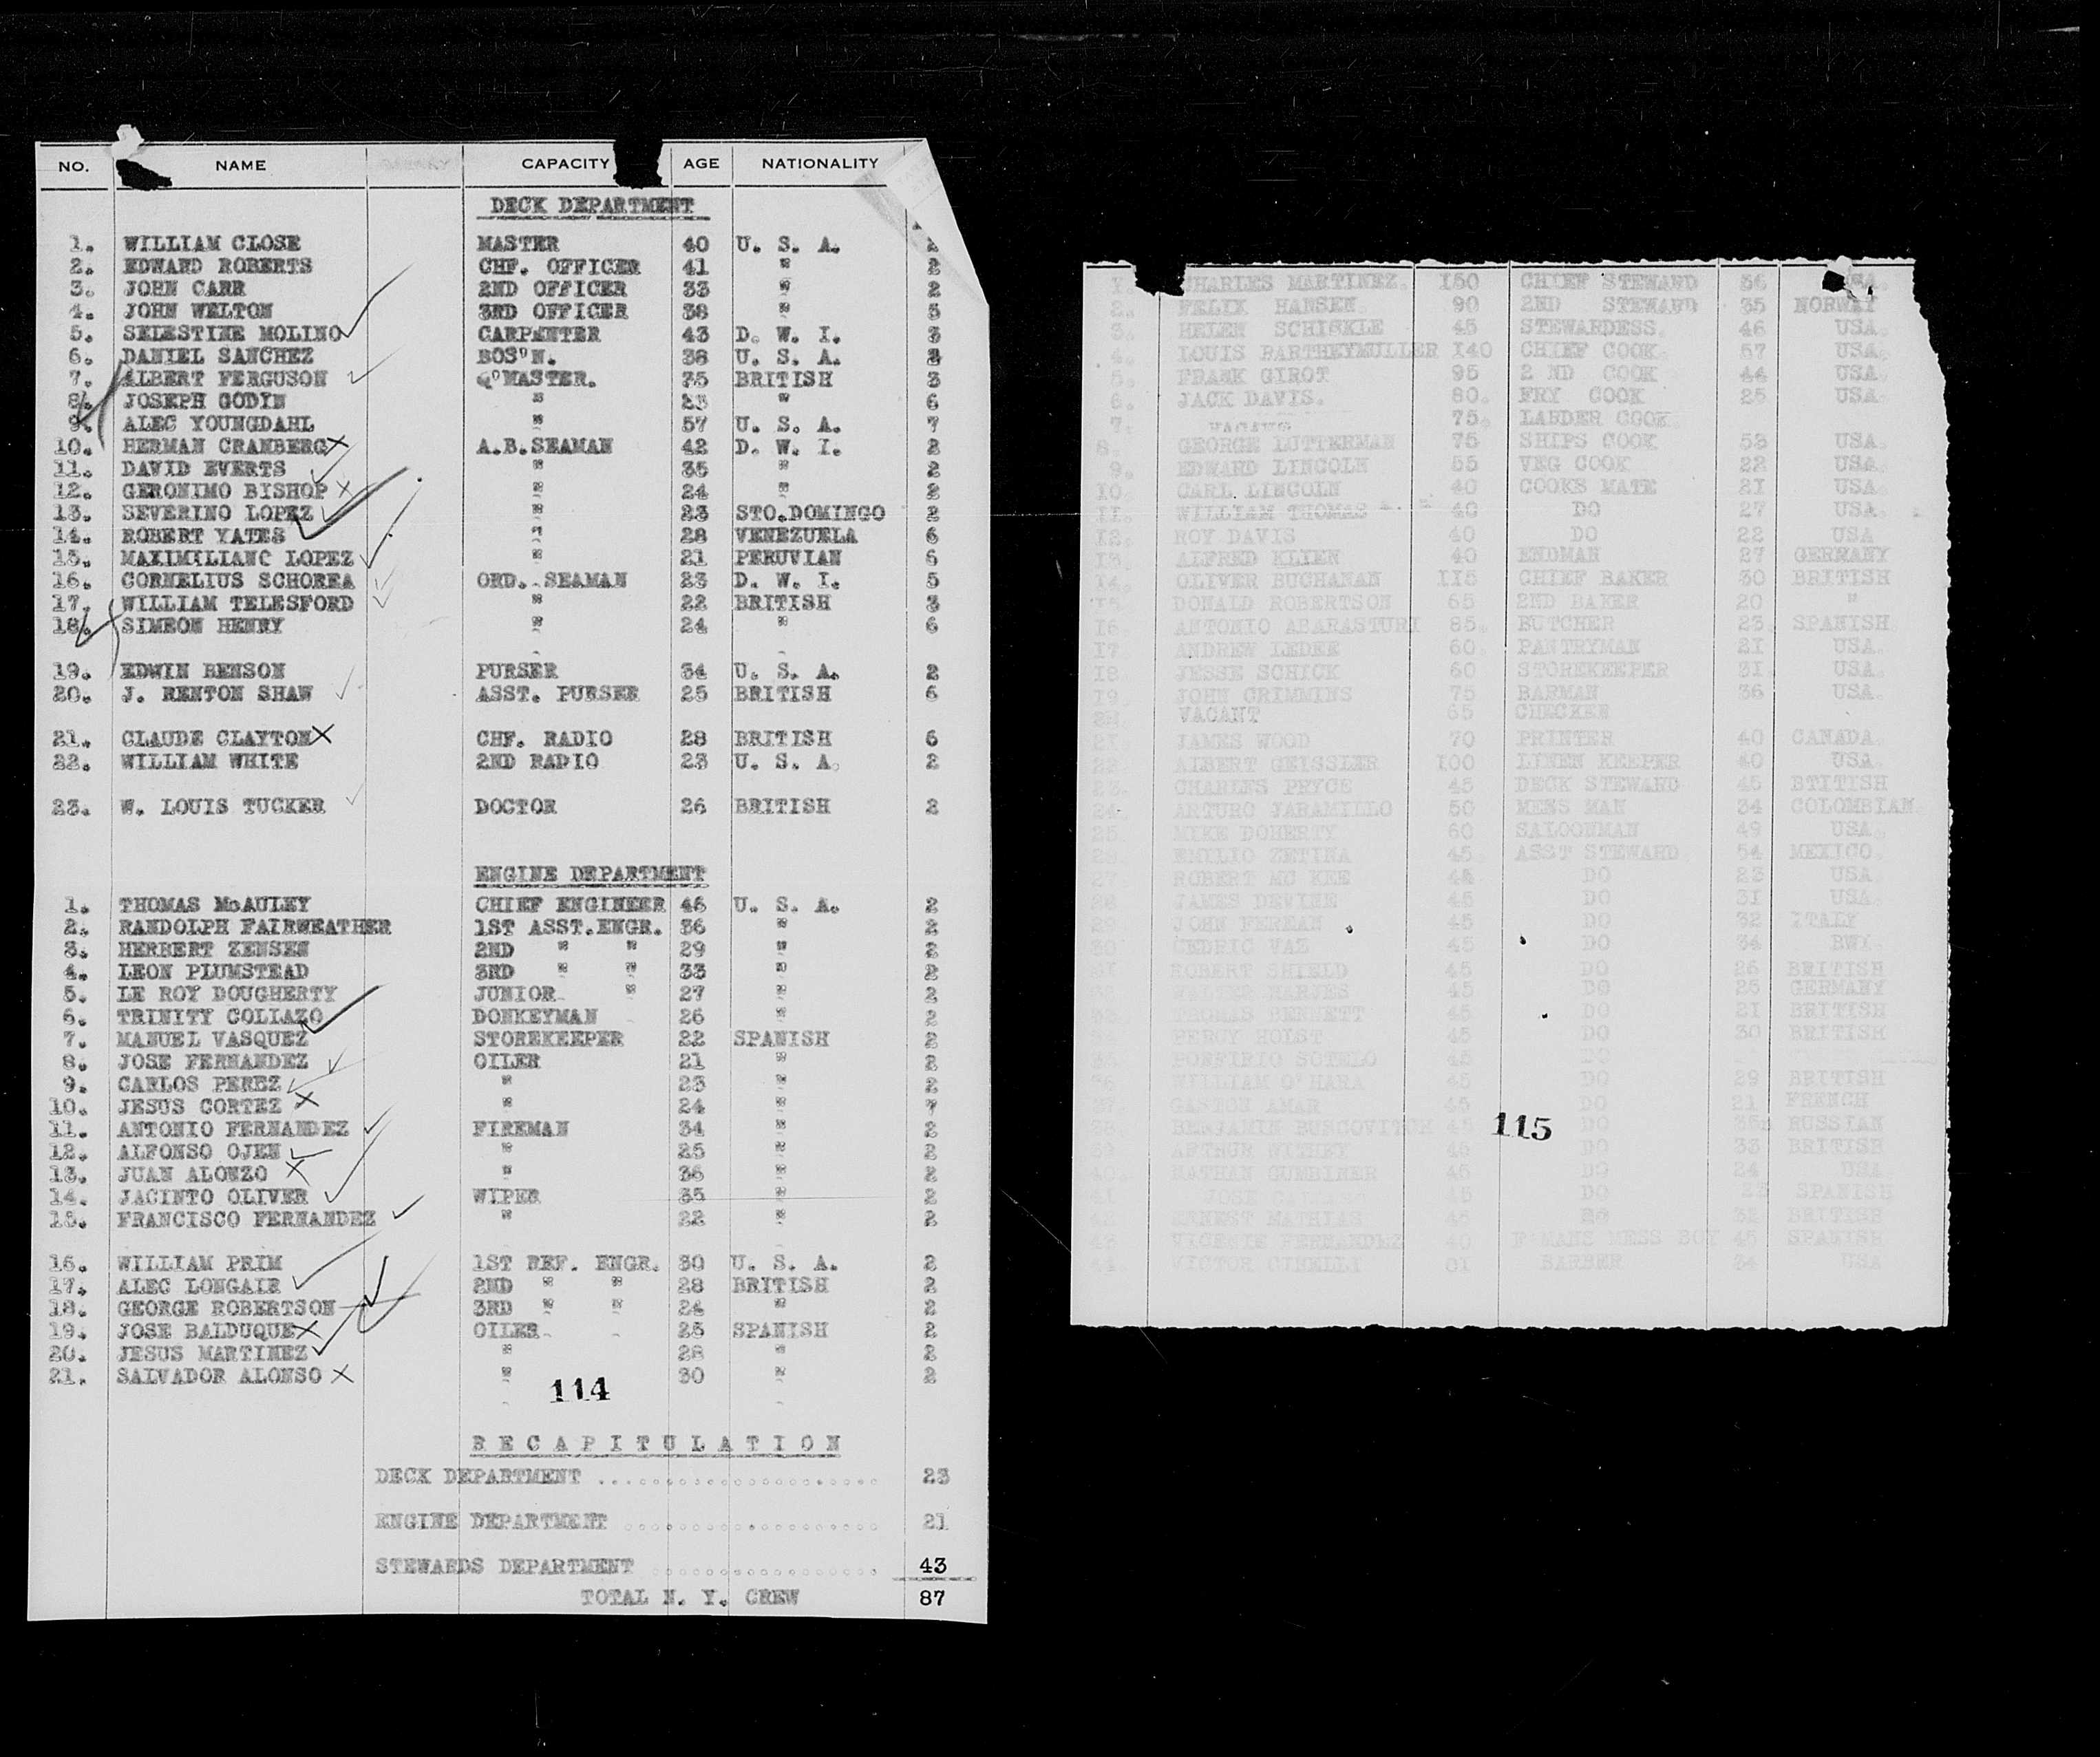 NO. NAME CAPACITY AGE NATIONALITY
DECK DEPARTMENT
1. WILLIAM CLOSE MASTER 40 U. S. A. 2
2. EDWARD ROBERTS CHF. OFFICER 41 " 2
3. JOHN CARR 2ND OFFICER 33 " 2
4. JOHN WELTON 3RD OFFICER 38 " 5
5. SELESTINE MOLINO CARPENTER 43 D. W. I. 3
6. DANIEL SANCHEZ BOS'N. 38 U. S. A.
7. ALBERT FERGUSON Q'MASTER. 35 BRITISH 3
8. JOSEPH GODIN " 23 " 6
9. ALEC YOUNGDAHL " 57 U. S. A. 7
10. HERMAN CRANBERG A.B.SEAMAN 42 D. W. I. 2
11. DAVID EVERTS " 35 " 2
12. GERONIMO BISHOP " 24 " 2
13. SEVERINO LOPEZ " 23 STO.DOMINGO 2
14. ROBERT YATES " 28 VENEZUELA 6
15. MAXIMILIANO LOPEZ " 21 PERUVIAN 6
16. CORNELIUS SCHOREA ORD. SEAMAN 23 D. W. I. 5
17. WILLIAM TELESFORD " 22 BRITISH 3
18. SIMEON HENRY " 24 " 6
19. EDWIN BENSON PURSER 34 U. S. A. 2
20. J. RENTON SHAW ASST. PURSER 25 BRITISH 6
21. CLAUDE CLAYTON CHF. RADIO 28 BRITISH 6
22. WILLIAM WHITE 2ND RADIO 23 U. S. A. 2
23. W. LOUIS TUCKER DOCTOR 26 BRITISH 2
ENGINE DEPARTMENT
1. THOMAS McAULEY CHIEF ENGINEER 46 U. S. A. 2
2. RANDOLPH FAIRWEATHER 1ST ASST.ENGR. 36 " 2
3. HERBERT ZENSEN 2ND " " 29 " 2
4. LEON PLUMSTEAD 3RD " " 33 " 2
5. LE ROY DOUGHERTY JUNIOR " 27 " 2
6. TRINITY COLLAZO DONKEYMAN 26 " 2
7. MANUEL VASQUEZ STOREKEEPER 22 SPANISH 2
8. JOSE FERNANDEZ OILER 21 " 2
9. CARLOS PEREZ " 23 " 2
10. JESUS CORTEZ " 24 " 7
11. ANTONIO FERNANDEZ FIREMAN 34 " 2
12. ALFONSO OJEN " 25 " 2
13. JUAN ALONZO " 36 " 2
14. JACINTO OLIVER WIPER 35 " 2
15. FRANCISCO FERNANDEZ " 22 " 2
16. WILLIAM PRIM 1ST REF. ENGR. 30 U. S. A. 2
17. ALEC LONGAIR 2ND " " 28 BRITISH 2
18. GEORGE ROBERTSON 3RD " " 24 " 2
19. JOSE BALDUQUE OILER 25 SPANISH 2
20. JESUS MARTINEZ " 28 " 2
21. SALVADOR ALONSO " 30 " 2
114
RECAPITULATION
DECK DEPARTMENT ...................... 23
ENGINE DEPARTMENT ................... 21
STEWARDS DEPARTMENT ................. 43
TOTAL N. Y. CREW 87
1. CHARLES MARTINEZ. 150 CHIEF STEWARD 36 USA.
2. FELIX HANSEN. 90 2ND STEWARD 35 NORWAY
3. HELEN SCHISKLE 45 STEWARDESS. 46 USA.
4. LOUIS BARTHEYMULLER 140 CHIEF COOK. 57 USA.
5. FRANK GIROT 95 2 ND COOK 44 USA.
6. JACK DAVIS. 80. FRY COOK 25 USA.
7. VACANT 75. LARDER COOK.
8. GEORGE LUTTERMAN 75 SHIPS COOK 53 USA.
9. EDWARD LINCOLN 55 VEG COOK 22 USA.
10. CARL LINCOLN 40 COOKS MATE 21 USA.
11. WILLIAM THOMAS 40 DO 27 USA.
12. ROY DAVIS 40 DO 22 USA
13. ALFRED KLIEN 40 ENDMAN 27 GERMANY
14. OLIVER BUCHANAN 115 CHIEF BAKER 30 BRITISH
15. DONALD ROBERTSON 65 2ND BAKER 20 "
16. ANTONIO ABARASTURI 85. BUTCHER 23. SPANISH.
17. ANDREW LEDEE 60. PANTRYMAN 21 USA.
18. JESSE SCHICK 60 STOREKEEPER 31. USA.
19. JOHN CRIMMINS 75 BARMAN 36 USA.
VACANT 65 CHECKER
21. JAMES WOOD 70 PRINTER 40 CANADA.
22. ALBERT GEISSLER 100 LINEN KEEPER 40 USA.
23. CHARLES PRYCE 45 DECK STEWARD 45 BTITISH
24. ARTURO JARAMILLO 50 MESS MAN 34 COLOMBIAN.
25. MIKE DOHERTY 60 SALOONMAN 49 USA.
26. EMILIO ZETINA 45. ASST STEWARD. 54 MEXICO.
27. ROBERT MC KEE 45 DO 23 USA.
28 JAMES DEVINE 45 DO 31 USA.
29. JOHN FEREAN 45 DO 32 ITALY
30. CEDRIC VAZ 45 DO 34 BWI.
31 ROBERT SHIELD 45 DO 26 BRITISH
HARJES 45 DO 25 GERMANY
BENNETT 45 DO 21 BRITISH
PERCY HOLST 45 DO 30 BRITISH
PORFIRIO SOTELO 45 DO
WILLIAM O'HARA 45 DO 29 BRITISH
37. GASTON AMAR 45 DO 21 FRENCH
BENJAMIN BUSCOVITCH 45 DO RUSSIAN
115
39 ARTHUR WITHEY 45 DO 33 BRITISH
40. NATHAN GUMBINER 45 DO 24 USA
41 45 DO SPANISH
42 ERNEST MATHIAS 45 DO 32 BRITISH
43 VICENTE FERNANDEZ 40 MESS BOY 45 SPANISH
44 VICTOR CINELLI 01 BARBER 34 USA